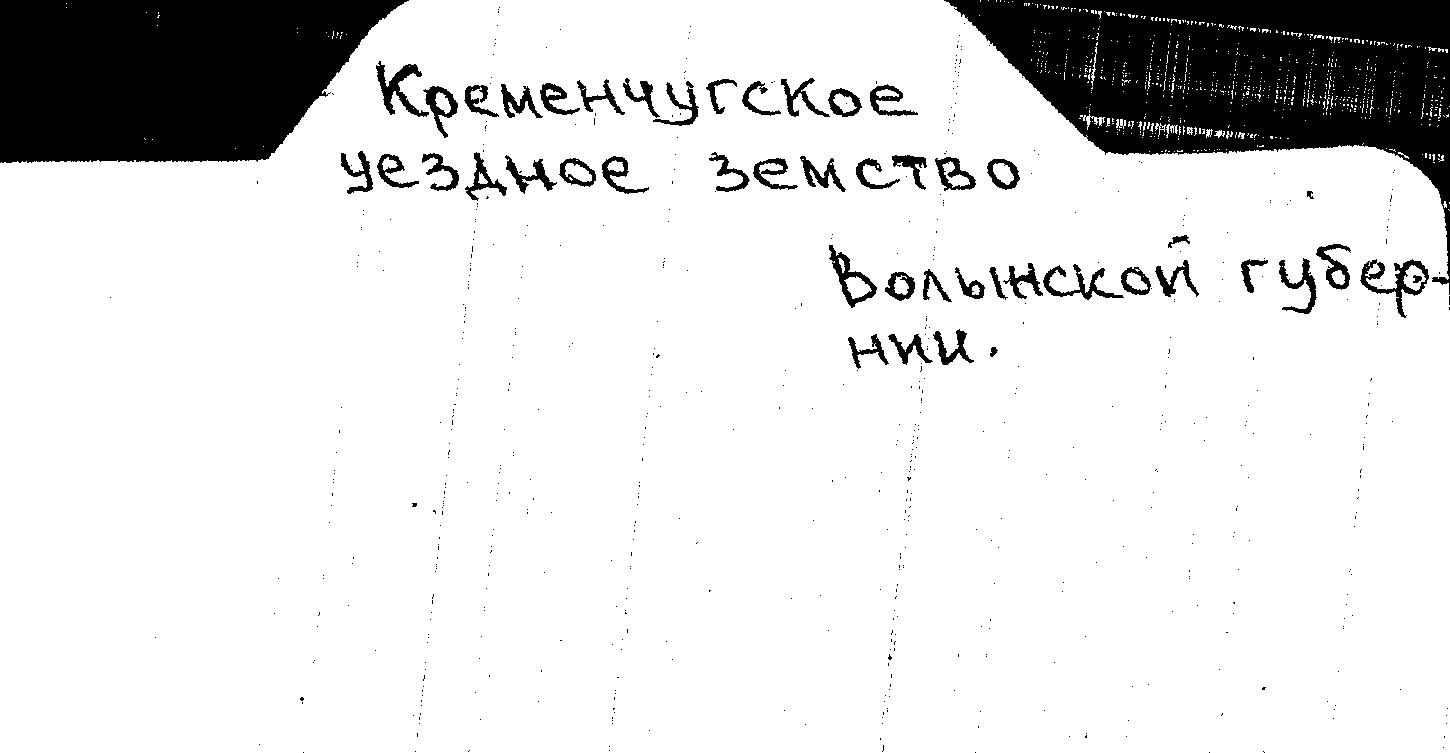 Кременчугское
уездное земство
Волынской губер-
нии.